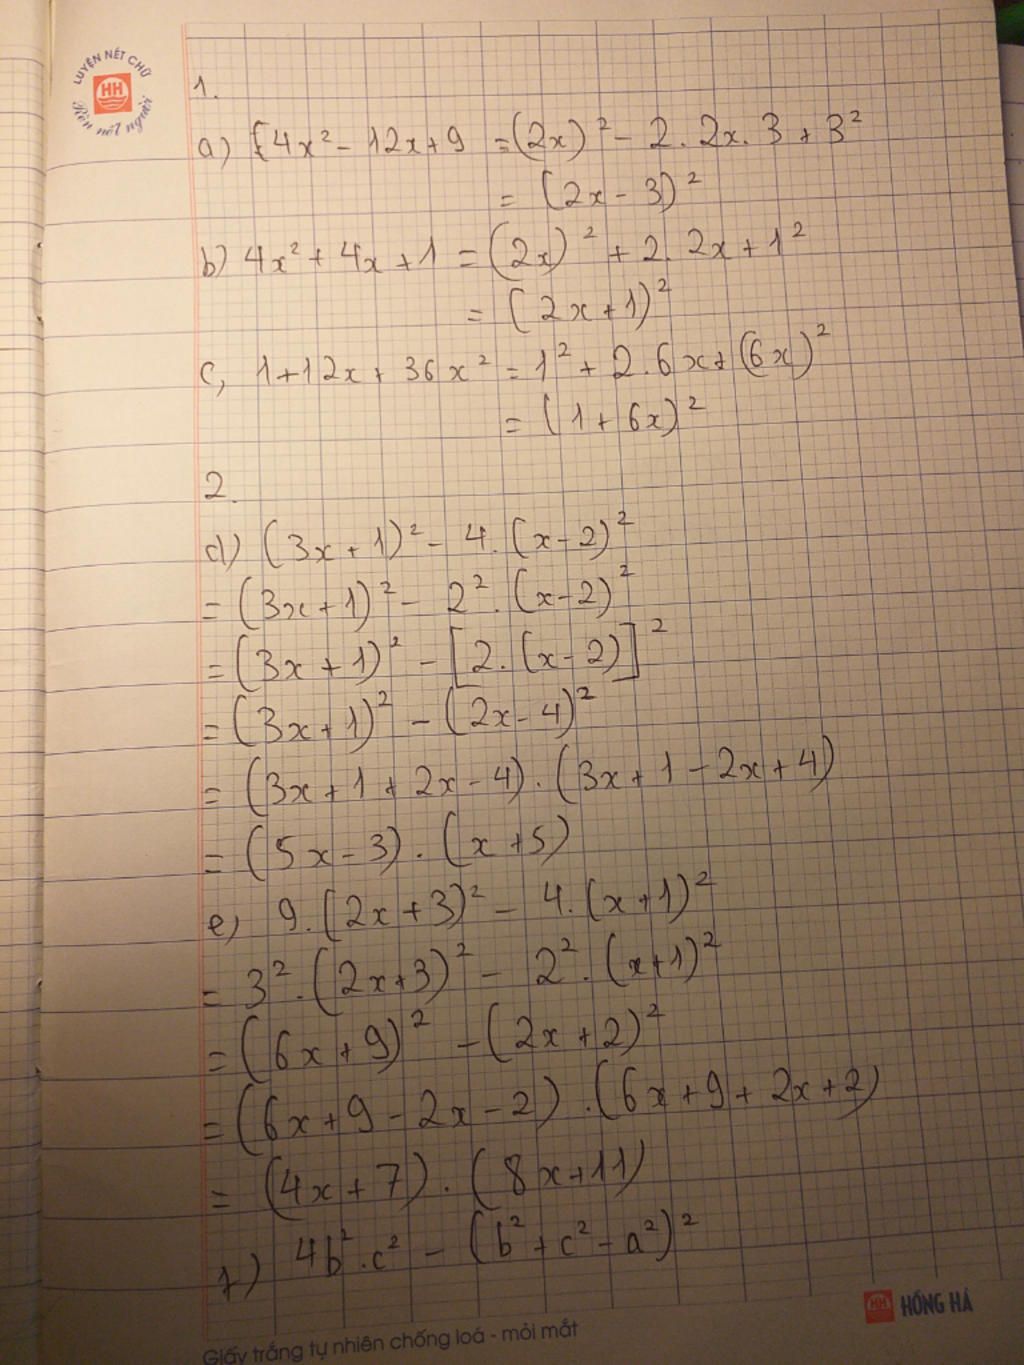 LUYỆN NÉT CHỮ
HH
Rèn nết người
1.
a) [4x² - 12x + 9 = (2x)² - 2. 2x. 3 + 3²
= (2x - 3)²
b) 4x² + 4x + 1 = (2x)² + 2. 2x + 1²
= (2x + 1)²
c, 1 + 12x + 36x² = 1² + 2.6x + (6x)²
= (1 + 6x)²
2.
d) (3x + 1)² - 4. (x - 2)²
= (3x + 1)² - 2². (x - 2)²
= (3x + 1)² - [2. (x - 2)]²
= (3x + 1)² - (2x - 4)²
= (3x + 1 + 2x - 4) . (3x + 1 - 2x + 4)
= (5x - 3) . (x + 5)
e) 9. (2x + 3)² - 4. (x + 1)²
= 3² . (2x + 3)² - 2² . (x + 1)²
= (6x + 9)² - (2x + 2)²
= (6x + 9 - 2x - 2) . (6x + 9 + 2x + 2)
= (4x + 7) . (8x + 11)
f) 4b² . c² - (b² + c² - a²)²
HH HỒNG HÀ
Giấy trắng tự nhiên chống loá - mỏi mắt